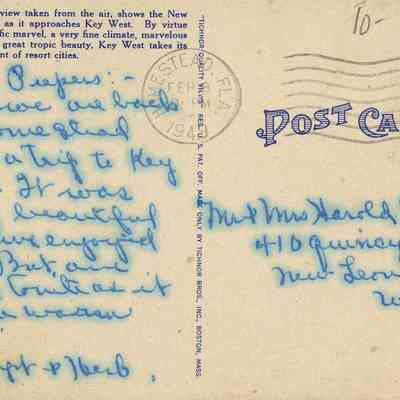 view taken from the air, shows the New
as it approaches Key West. By virtue
fic marvel, a very fine climate, marvelous
great tropic beauty, Key West takes its
nt of resort cities.
10-
HOMESTEAD, FLA
FEB
194
"TICHNOR QUALITY VIEWS" REG. U. S. PAT. OFF. MADE ONLY BY TICHNOR BROS., INC., BOSTON, MASS.
POST CA
we are back
omestead
a trip to Key
It was
beautiful
enjoyed
But, our
as it
warm
& Herb.
Mr & Mrs Harold
410 Quincy
New